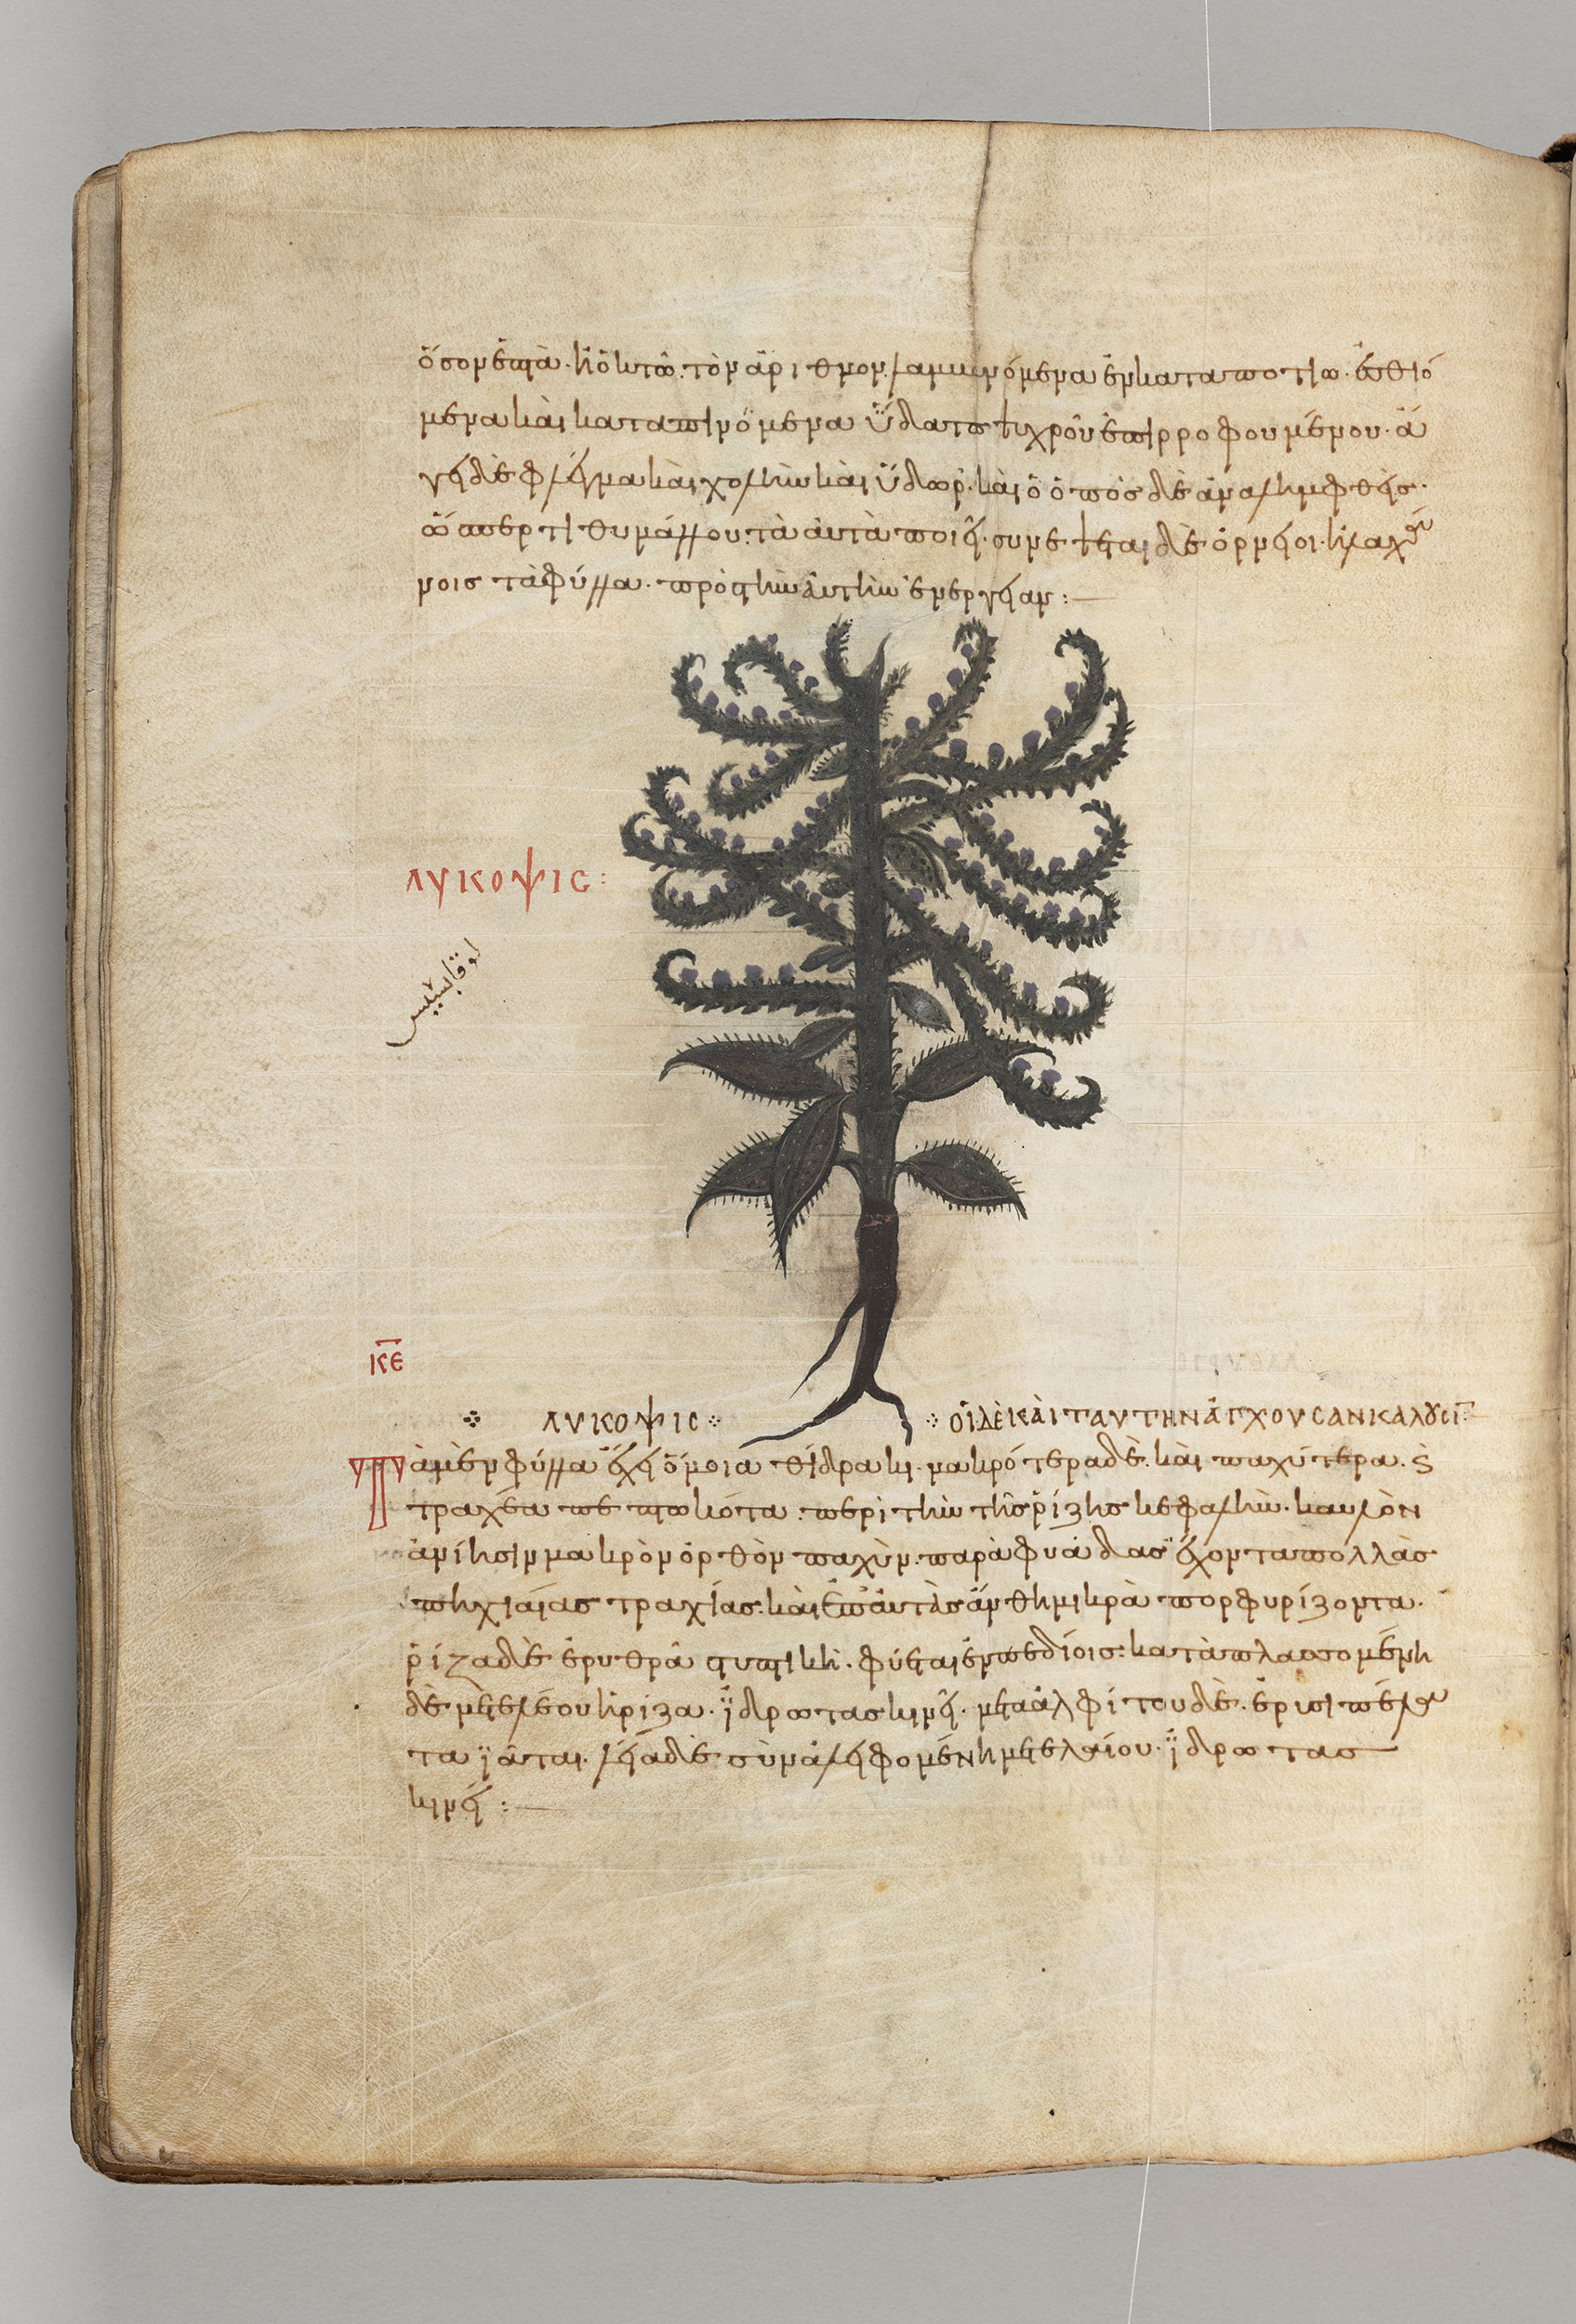 ὅσον ἑπτὰ· ἢ ὀκτὼ· τὸν ἀριθμον· λαμπανόμενα ἐν καταποτίω· ἐσθιό
μενα καὶ καταπινόμενα ὕδατος ψυχροῦ ἐπιρροφουμένου· ἄ
γει δὲ φλέγμα καὶ χολὴν καὶ ὕδωρ· καὶ ὁ ὀπὸς δὲ ἀναλημφθεὶς·
ὥσπερ τιθυμάλλου· τὰ αὐτὰ ποιεῖ· συνεψεται δὲ ὀρνέοι· ἢ λαχά
νοις τὰ φύλλα· πρὸς τὴν αὐτὴν ἐνεργείαν :—
ΛΥΚΟΨΙC:
لوقابسيس
ΚΕ
ΛΥΚΟΨΙC
ΟἹ ΔῈ ΚΑῚ ΤΑΥΤΗΝ ἌΓΧΟΥCΑΝ ΚΑΛΟΥCΙ
Τὰ μὲν φύλλα ἔχει ὅμοια θίδρακι· μακρότερα δὲ· καὶ παχύτερα· ϛ
τραχέα πεπτωκότα· περὶ τὴν τῆς ῥίζης κεφαλὴν· καυλὸν
ἀνίησιν μακρὸν ὀρθὸν παχὺν· παραφυάδας ἔχοντα πολλὰς
πηχιαίας τραχίας· καὶ ἐπ' αὐτὰς ἄνθη μικρὰ πορφυρίζοντα·
ῥίζα δὲ ἐρυθρὰ στυπτικὴ· φύεται ἐν πεδίοις· καταπλασσομένη
δὲ μετ ελέου ἡ ρίζα· ἵδρωτας κινεῖ· μετα ἀλφίτου δὲ· ἐρισιπέλα
τα ἰᾶται· λεία δὲ σὺν ἀλειφομένη μετ ελαίου· ἵδρωτας
κινεῖ :—